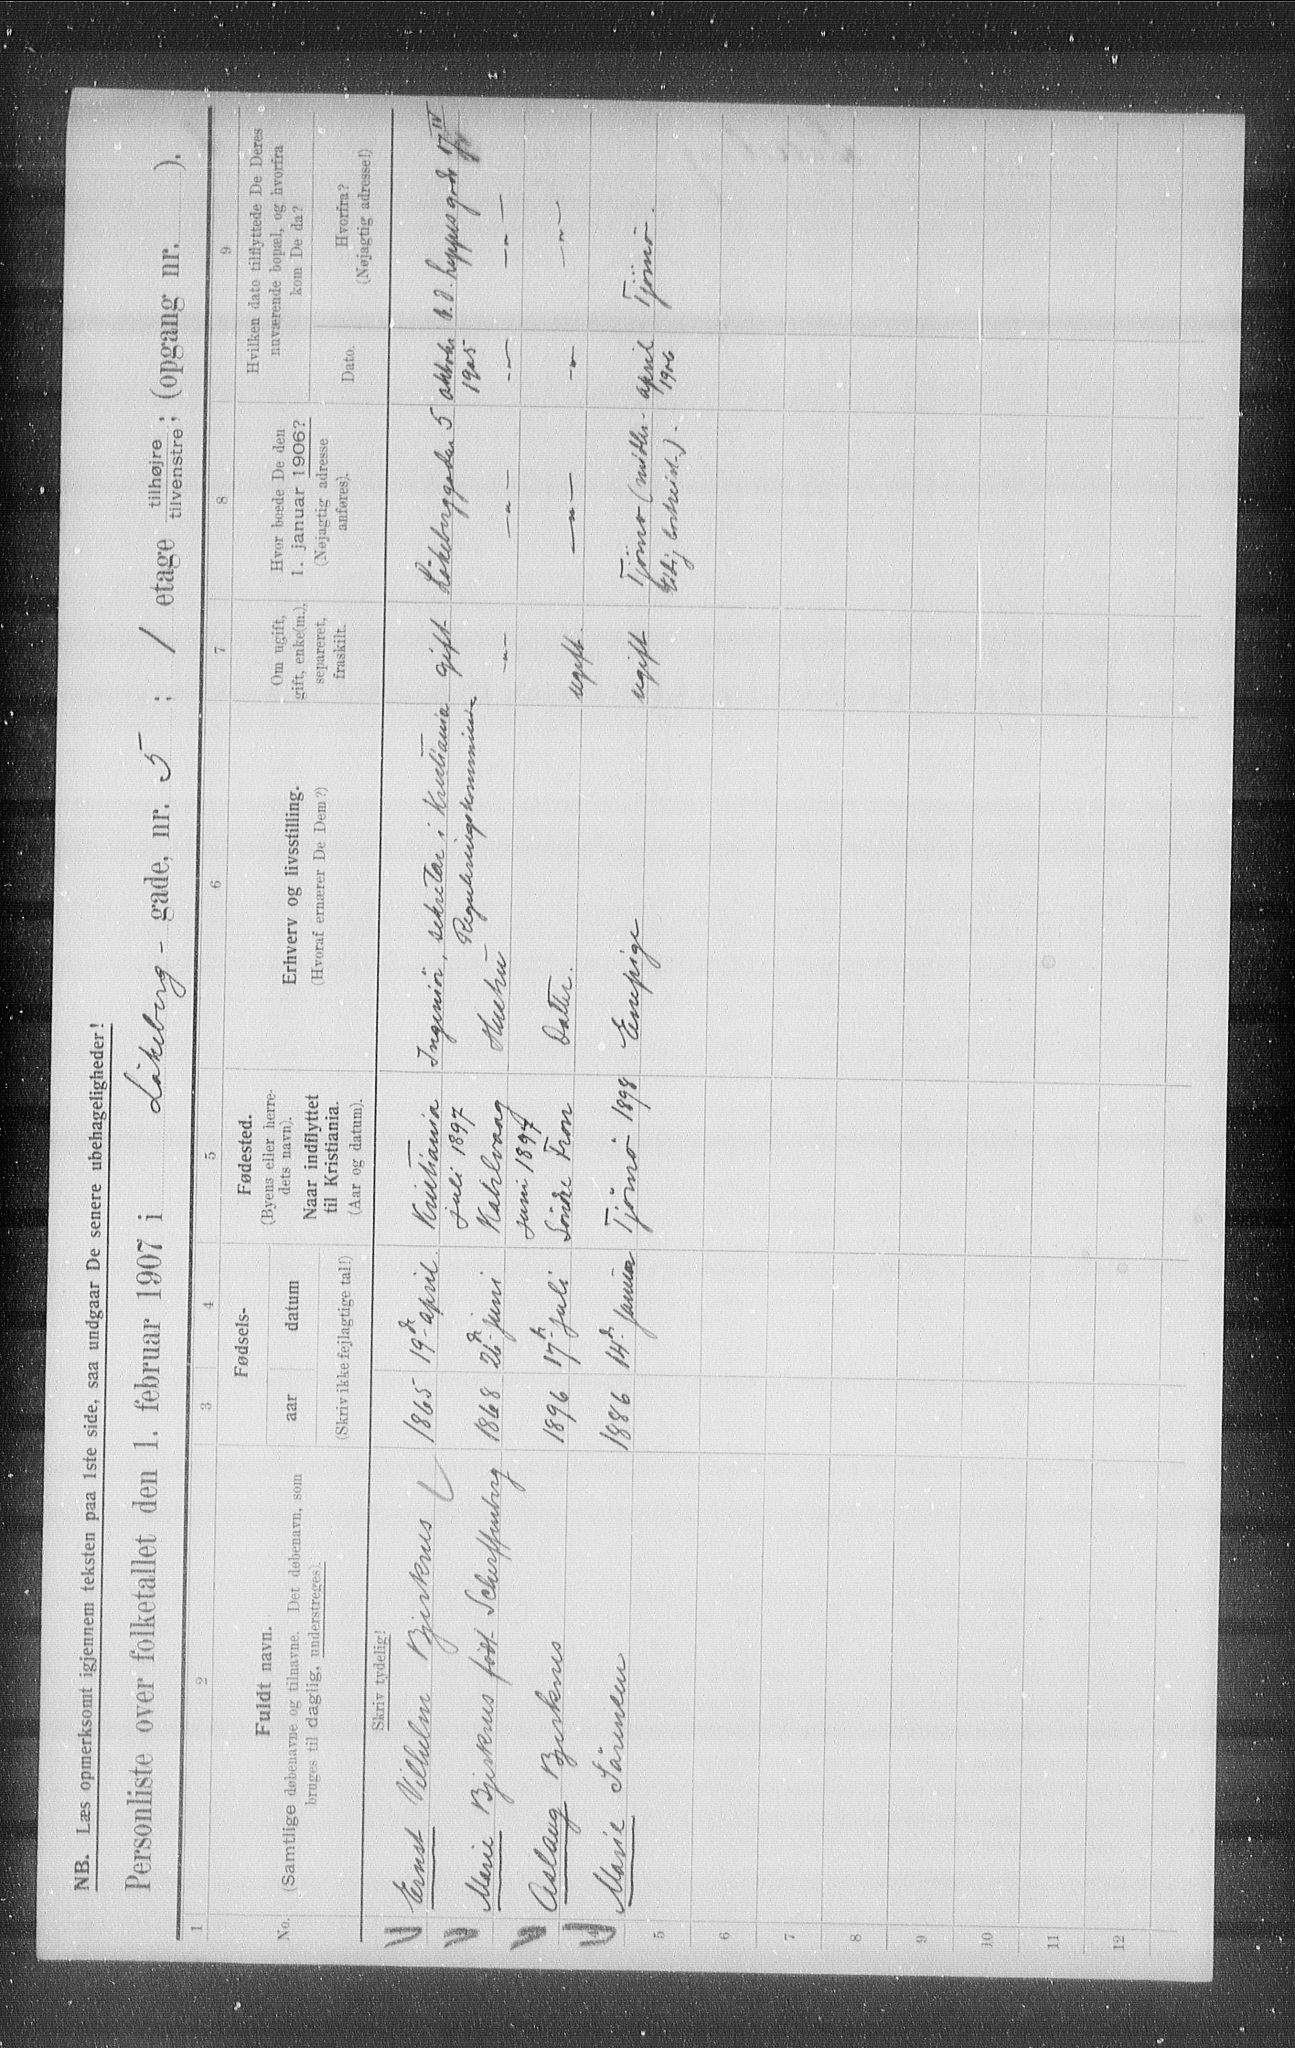 NB. Læs opmerksomt igjennem teksten paa 1ste side, saa undgaar De senere ubehageligheder!
Personliste over folketallet den 1. februar 1907 i Løkeberg- gade, nr. 5 ; 1 etage tilhøjre tilvenstre; (opgang nr. ).
1 2 3 4 5 6 7 8 9
No.
Fuldt navn.
(Samtlige døbenavne og tilnavne. Det døbenavn, som
bruges til daglig, understreges).
Fødsels-
aar datum
(Skriv ikke fejlagtige tal!)
Fødested.
(Byens eller herre-
dets navn).
Naar indflyttet
til Kristiania.
(Aar og datum).
Erhverv og livsstilling.
(Hvoraf ernærer De Dem?)
Om ugift,
gift, enke(m.),
separeret,
fraskilt.
Hvor boede De den
1. januar 1906?
(Nøjagtig adresse
anføres).
Hvilken dato tilflyttede De Deres
nuværende bopæl, og hvorfra
kom De da?
Dato.
Hvorfra?
(Nøjagtig adresse!)
Skriv tydelig!
Ernst Vilhelm Bjerknes 1865 19de april. Kristiania juli 1897 Ingeniör, sekretær i Kristiania Reguleringskommission gift Løkeberggaden 5 oktober 1905 h. D. Keysers gade 17 IV
Marie Bjerknes født Scharffenberg 1868 26de juni juni 1897 Hustru —"— —"— —"— —"—
Aslaug Bjerknes 1896 17de juli Søndre Fron Datter. ugift. —"— —"— —"—
4 Marie Sörensen 1886 14de januar Tjömö 1898 Enepige ugift Tjömö april 1906 Tjömö.
5
6
7
8
9
10
11
12